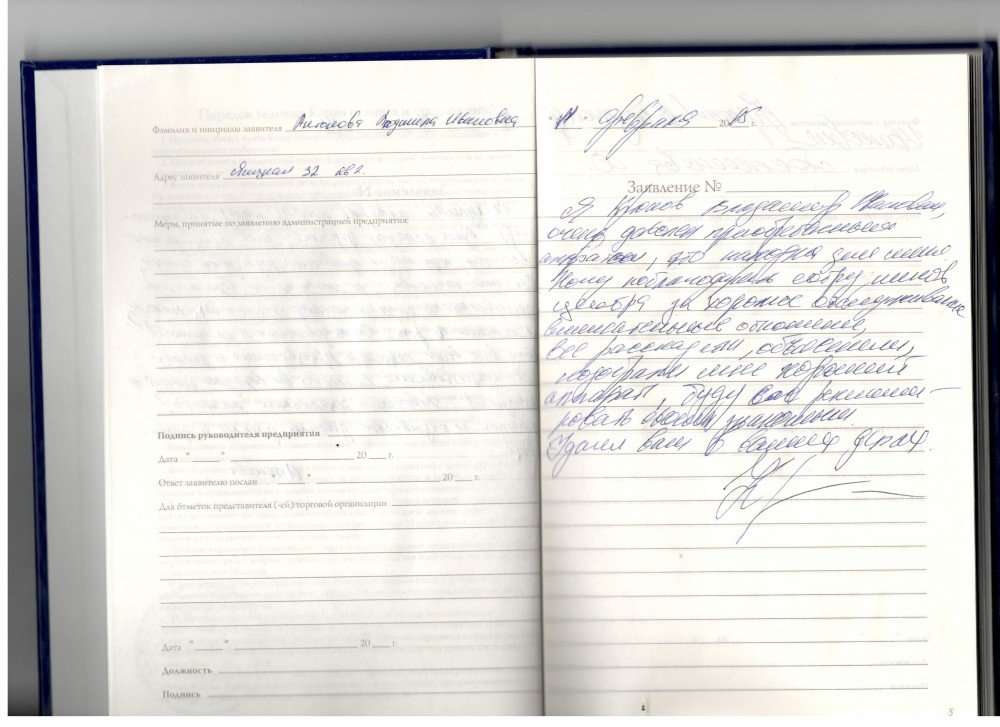 Фамилия и инициалы заявителя Людмила Ивановна
Адрес заявителя 32 кв 2.
Меры, принятые по заявлению администрацией предприятия:
Подпись руководителя предприятия
Дата "____" ____ 20___ г.
Ответ заявителю послан " " 20___ г.
Для отметок представителя (-ей) торговой организации
Дата "____" ____ 20___ г.
Должность
Подпись
11 февраля 2015 г.
Заявление №
Я Крюков Владимир Иванович,
очень доволен приобретенным
аппаратом, это находка для меня.
Хочу поблагодарить сотрудников
центра за хорошее обслуживание
внимательное отношение,
все рассказали, объяснили,
подобрали мне хороший
аппарат, буду вас рекоменди-
ровать своим знакомым.
Удачи вам в ваших делах.
5